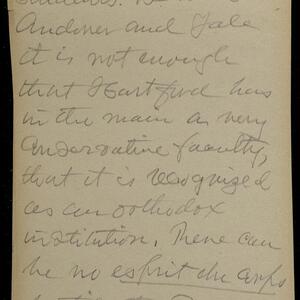 Andover and Yale
it is not enough
that Hartford has
in the main a very
conservative faculty,
that it is recognized
as an orthodox
institution. There can
be no esprit du corps